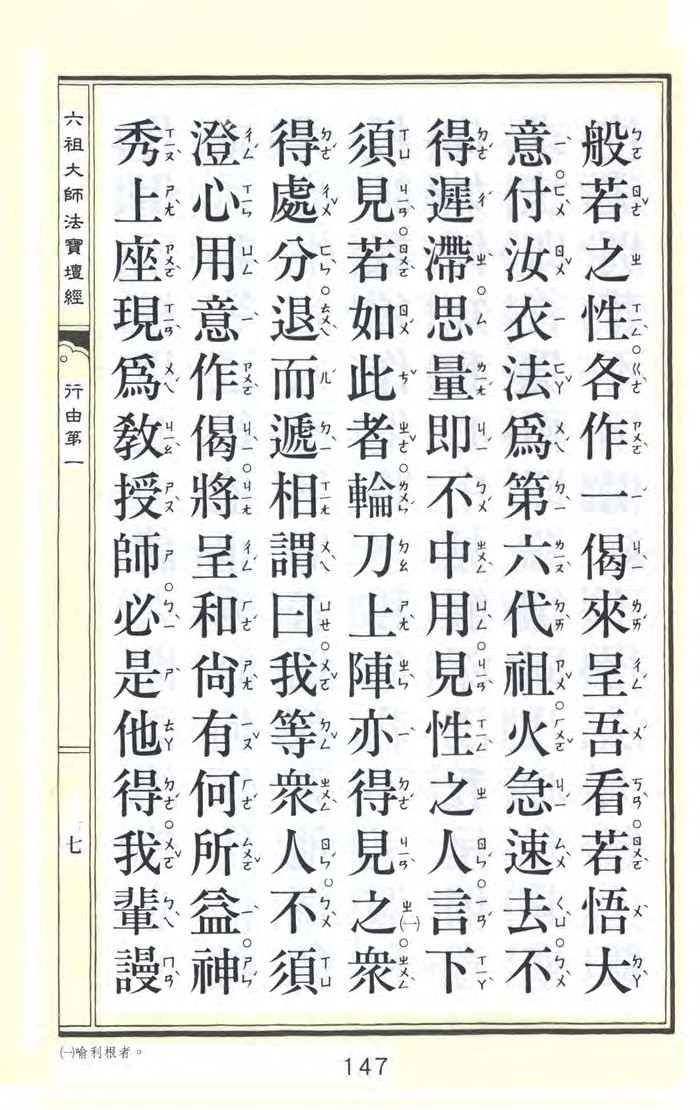 般若之性。各作一偈來呈吾看。若悟大
意。付汝衣法。爲第六代祖。火急速去。不
得遲滯。思量即不中用。見性之人。言下
須見。若如此者。輪刀上陣。亦得見之㈠。衆
得處分。退而遞相謂曰。我等衆人。不須
澄心用意作偈。將呈和尙。有何所益。神
秀上座。現爲教授師。必是他得。我輩謾
六祖大師法寶壇經
行由第一
七
㈠喻利根者。
147